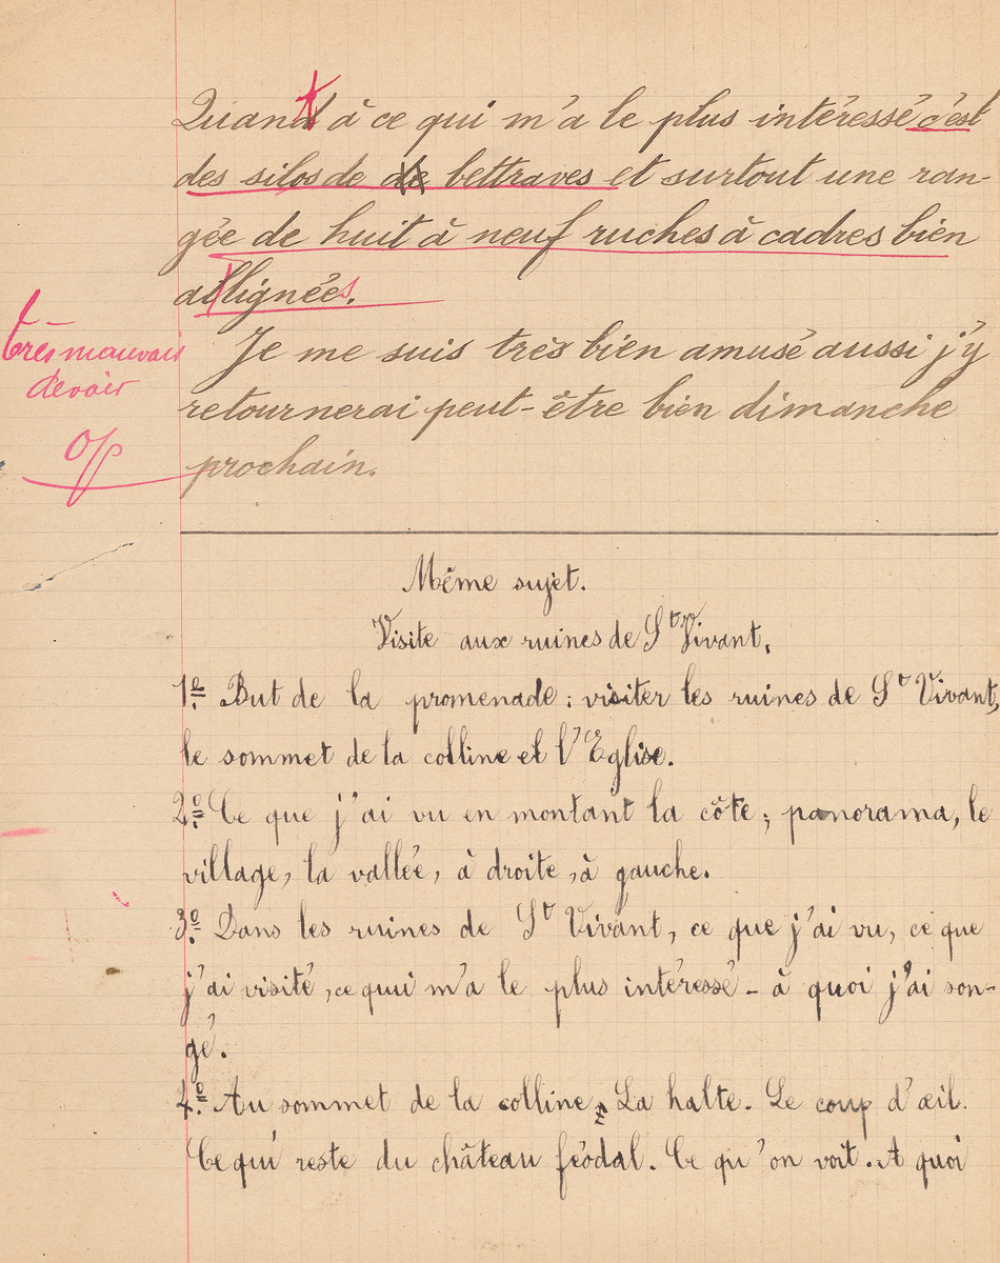 Quand à ce qui m'a le plus intéressé c'est
des silos de de bettraves et surtout une ran-
gée de huit à neuf ruches à cadres bien
allignées.
très mauvais
devoir
0/
Je me suis très bien amusé aussi j'y
retournerai peut-être bien dimanche
prochain.
Même sujet.
Visite aux ruines de St Vivant.
1º. But de la promenade : visiter les ruines de St Vivant,
le sommet de la colline et l'Eglise.
2º. Ce que j'ai vu en montant la côte ; panorama, le
village, la vallée, à droite, à gauche.
3º. Dans les ruines de St Vivant, ce que j'ai vu, ce que
j'ai visité, ce qui m'a le plus intéressé - à quoi j'ai son-
gé.
4º. Au sommet de la colline. La halte. Le coup d'œil.
Ce qui reste du château féodal. Ce qu'on voit. A quoi